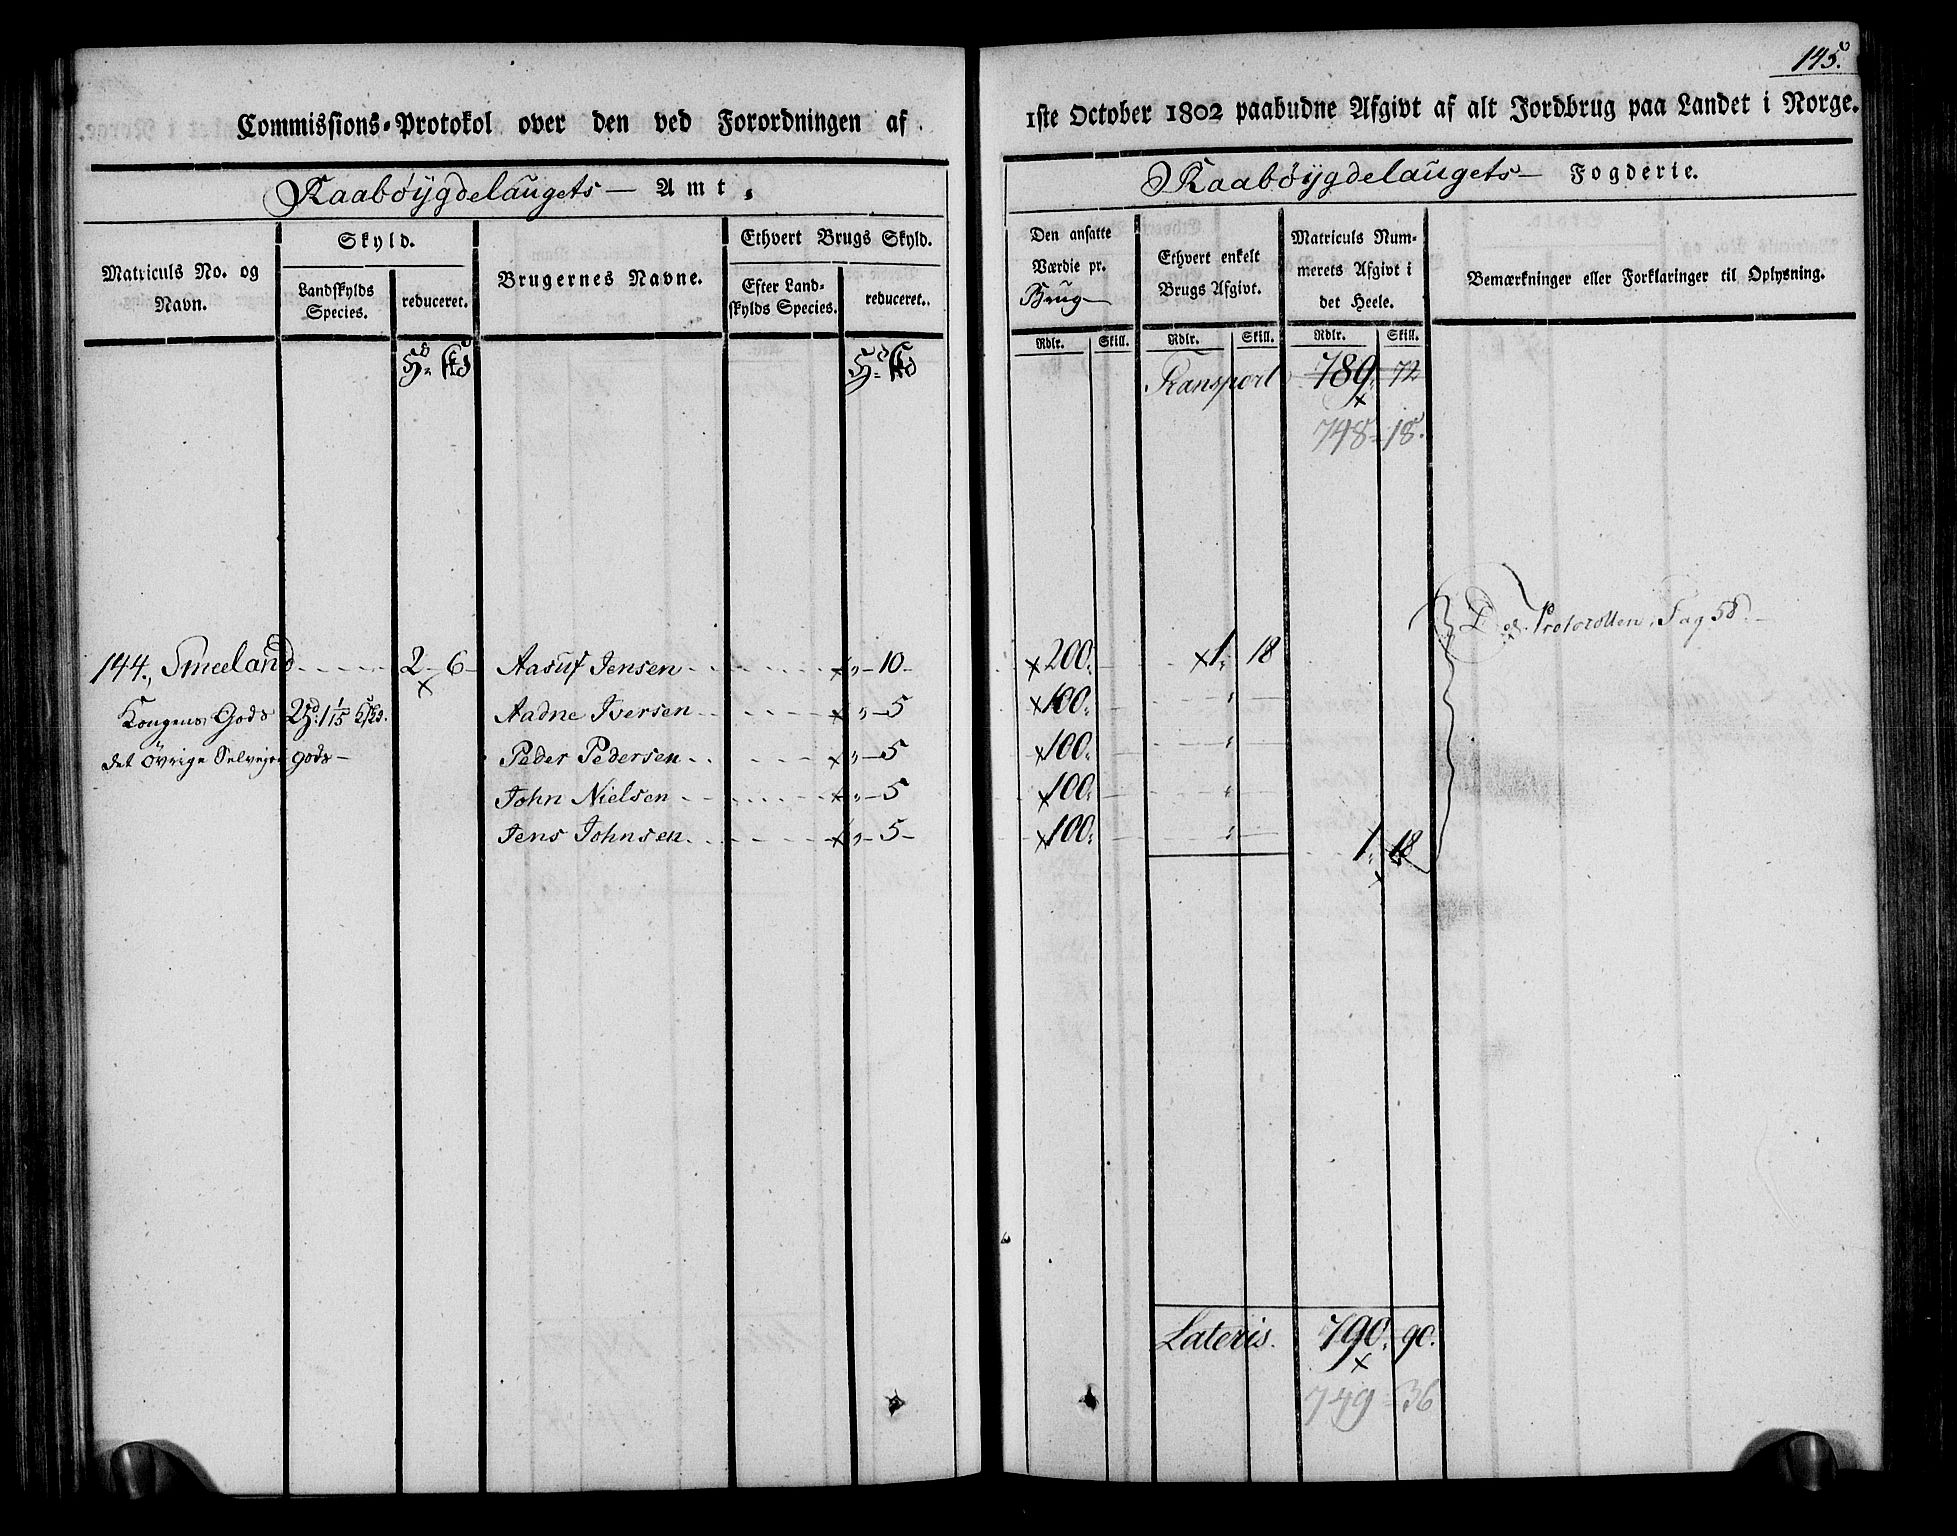 145.
Commissions-Protokol over den ved Forordningen af
1ste October 1802 paabudne Afgivt af alt Jordbrug paa Landet i Norge.
Raabøygdelaugets Amt,
Raabøygdelaugets Fogderie.
Matriculs No. og Navn.
Skyld.
Landskylds Species.
reduceret.
Brugernes Navne.
Ethvert Brugs Skyld.
Efter Landskylds Species.
reduceret.
Den ansatte Værdie pr. Brug
Ethvert enkelt Brugs Afgivt.
Matriculs Nummerets Afgivt i det Heele.
Bemærkninger eller Forklaringer til Oplysning.
Rdlr. Skill. Rdlr. Skill. Rdlr. Skill.
Transport 789. 72
748 - 18.
Protocollen Pag 58.
144., Smeeland 2 - 6 - Aasuf Jensen " - 10 - 200. 1. 18
Kongens Gods 2 Hd. 1 1/15 Aadne Iversen " - 5 100. "
det övrige Selveyer gods - Peder Pedersen " - 5 100. "
John Nielsen " - 5 100. "
Jens Johnsen " - 5 - 100. " 1. 18
Lateris. 790. 90.
749 - 36